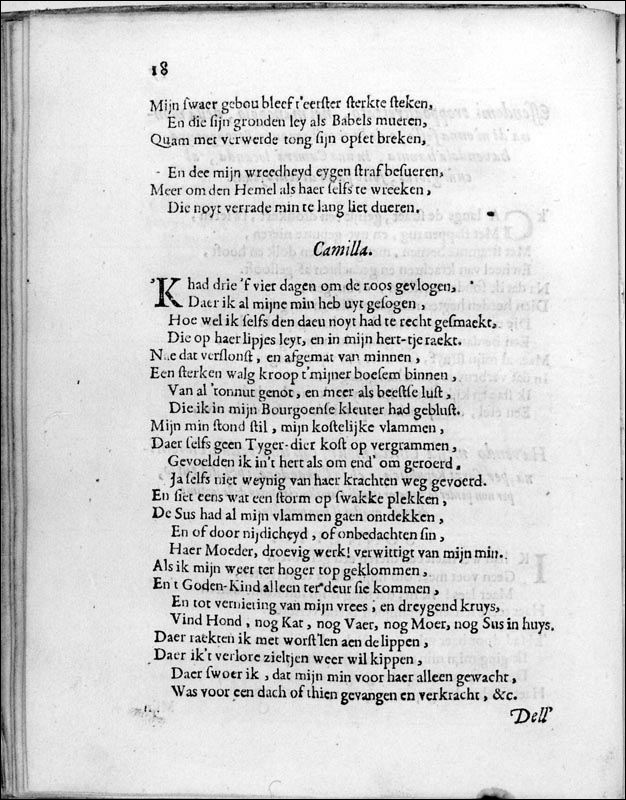 18
Mijn swaer gebou bleef t'eerster sterkte steken,
En die sijn gronden ley als Babels mueren,
Quam met verwerde tong sijn opset breken,
En dee mijn wreedheyd eygen straf besueren,
Meer om den Hemel als haer selfs te wreeken,
Die noyt verrade min te lang liet dueren.
Camilla.
'K had drie 'f vier dagen om de roos gevlogen,
Daer ik al mijne min heb uyt gesogen,
Hoe wel ik selfs den daeu noyt had te recht gesmaekt,
Die op haer lipjes leyt, en in mijn hert-tje raekt.
Nae dat verslonst, en afgemat van minnen,
Een sterken walg kroop t'mijner boesem binnen,
Van al 'tonnut genot, en meer als beestse lust,
Die ik in mijn Bourgoense kleuter had geblust.
Mijn min stond stil, mijn kostelijke vlammen,
Daer selfs geen Tyger-dier kost op vergrammen,
Gevoelden ik in't hert als om end' om geroerd.
Ja selfs niet weynig van haer krachten weg gevoerd.
En siet eens wat een storm op swakke plekken,
De Sus had al mijn vlammen gaen ontdekken,
En of door nijdicheyd, of onbedachten sin,
Haer Moeder, droevig werk! verwittigt van mijn min.
Als ik mijn weer ter hoger top geklommen,
En't Goden-Kind alleen ter deur sie kommen,
En tot verniering van mijn vrees, en dreygend kruys,
Vind Hond, nog Kat, nog Vaer, nog Moer, nog Sus in huys.
Daer raekten ik met worst'len aen de lippen,
Daer ik't verlore zieltjen weer wil kippen,
Daer swoer ik, dat mijn min voor haer alleen gewacht,
Was voor een dach of thien gevangen en verkracht, &c.
Dell'